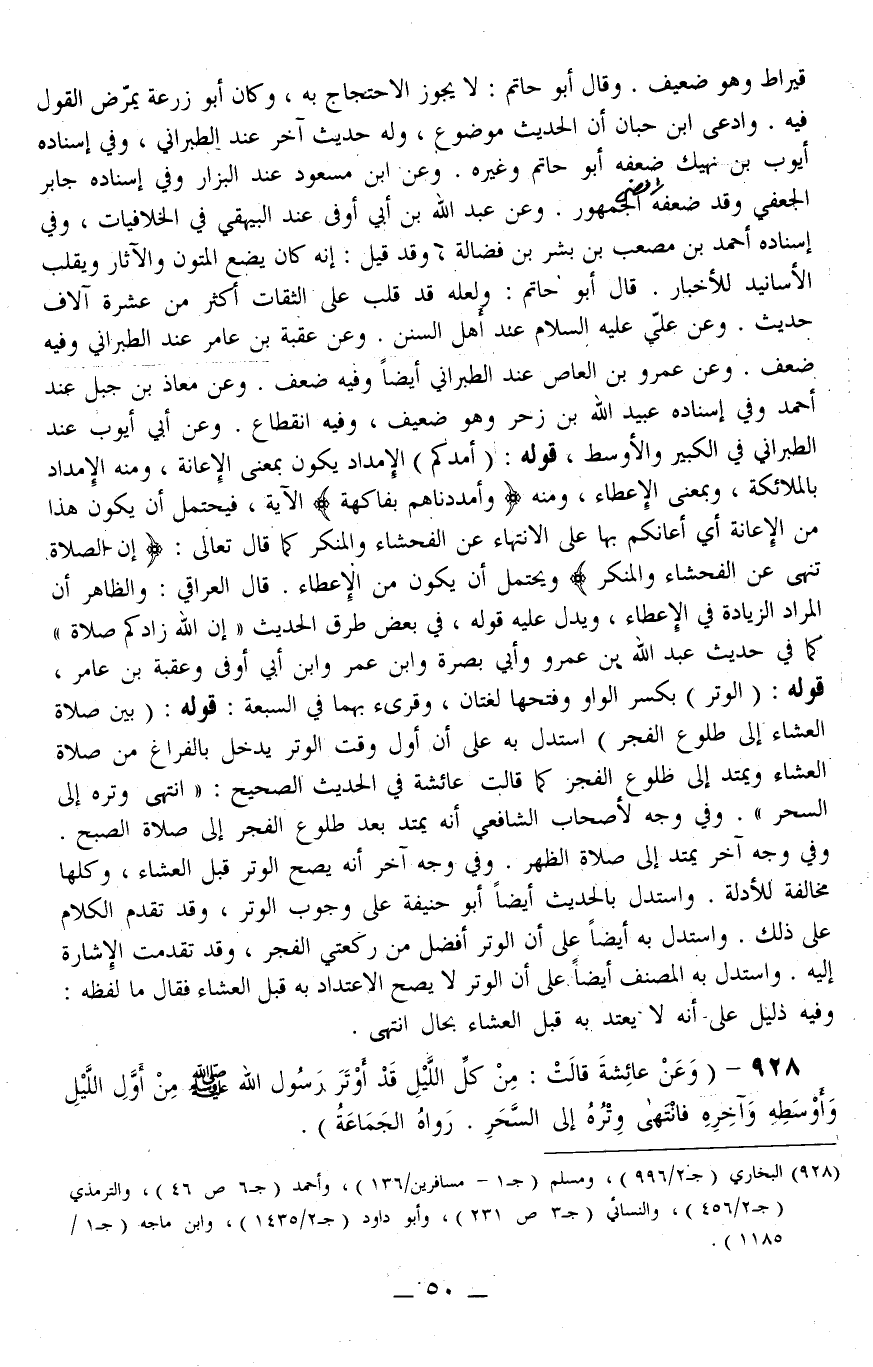 قيراط وهو ضعيف . وقال أبو حاتم : لا يجوز الاحتجاج به ، وكان أبو زرعة يمرّض القول
فيه . وادعى ابن حبان أن الحديث موضوع ، وله حديث آخر عند الطبراني ، وفي إسناده
أيوب بن نهيك ضعفه أبو حاتم وغيره . وعن ابن مسعود عند البزار وفي إسناده جابر
الجعفي وقد ضعفه الجمهور . وعن عبد الله بن أبي أوفى عند البيهقي في الخلافيات ، وفي
إسناده أحمد بن مصعب بن بشر بن فضالة ، وقد قيل : إنه كان يضع المتون والآثار ويقلب
الأسانيد للأخبار . قال أبو حاتم : ولعله قد قلب على الثقات أكثر من عشرة آلاف
حديث . وعن عليّ عليه السلام عند أهل السنن . وعن عقبة بن عامر عند الطبراني وفيه
ضعف . وعن عمرو بن العاص عند الطبراني أيضاً وفيه ضعف . وعن معاذ بن جبل عند
أحمد وفي إسناده عبيد الله بن زحر وهو ضعيف ، وفيه انقطاع . وعن أبي أيوب عند
الطبراني في الكبير والأوسط ، قوله : ( أمدكم ) الإمداد يكون بمعنى الإعانة ، ومنه الإمداد
بالملائكة ، وبمعنى الإعطاء ، ومنه ﴿ وأمددناهم بفاكهة ﴾ الآية ، فيحتمل أن يكون هذا
من الإعانة أي أعانكم بها على الانتهاء عن الفحشاء والمنكر كما قال تعالى : ﴿ إن الصلاة
تنهى عن الفحشاء والمنكر ﴾ ويحتمل أن يكون من الإعطاء . قال العراقي : والظاهر أن
المراد الزيادة في الإعطاء ، ويدل عليه قوله ، في بعض طرق الحديث « إن الله زادكم صلاة »
كما في حديث عبد الله بن عمرو وأبي بصرة وابن عمر وابن أبي أوفى وعقبة بن عامر ،
قوله : ( الوتر ) بكسر الواو وفتحها لغتان ، وقرىء بهما في السبعة : قوله : ( بين صلاة
العشاء إلى طلوع الفجر ) استدل به على أن أول وقت الوتر يدخل بالفراغ من صلاة
العشاء ويمتد إلى طلوع الفجر كما قالت عائشة في الحديث الصحيح : « انتهى وتره إلى
السحر » . وفي وجه لأصحاب الشافعي أنه يمتد بعد طلوع الفجر إلى صلاة الصبح .
وفي وجه آخر يمتد إلى صلاة الظهر . وفي وجه آخر أنه يصح الوتر قبل العشاء ، وكلها
مخالفة للأدلة . واستدل بالحديث أيضاً أبو حنيفة على وجوب الوتر ، وقد تقدم الكلام
على ذلك . واستدل به أيضاً على أن الوتر أفضل من ركعتي الفجر ، وقد تقدمت الإشارة
إليه . واستدل به المصنف أيضاً على أن الوتر لا يصح الاعتداد به قبل العشاء فقال ما لفظه :
وفيه دليل على أنه لا يعتد به قبل العشاء بحال انتهى .
٩٢٨ - ( وَعَنْ عائِشةَ قالَتْ : مِنْ كلِّ اللَّيْلِ قَدْ أَوْتَرَ رَسُول الله ﷺ مِنْ أَوَّلِ اللَّيْلِ
وَأَوْسَطِهِ وَآخِرِهِ فانْتَهىٰ وِتْرُهُ إلى السَّحَرِ . رَواهُ الجَماعَةُ ) .
(٩٢٨) البخاري ( جـ٩٩٦/٢ ) ، ومسلم ( جـ١ - مسافرين/١٣٦ ) ، وأحمد ( جـ٦ ص ٤٦ ) ، والترمذي
( جـ٤٥٦/٢ ) ، والنسائي ( جـ٣ ص ٢٣١ ) ، وأبو داود ( جـ١٤٣٥/٢ ) ، وابن ماجه ( جـ١ /
١١٨٥ ) .
ــ ٥٠ ــ